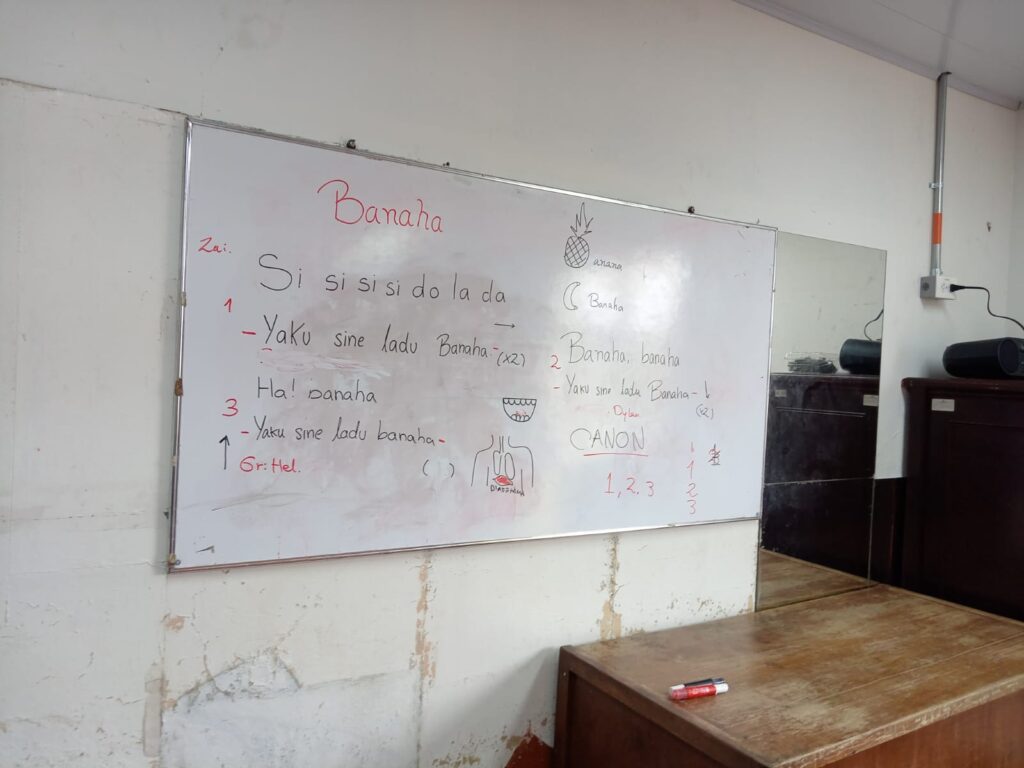 Banaha
Zai.
Si si si si do la da
1
- Yaku sine ladu Banaha - (x2)
Ha! banaha
3
- Yaku sine ladu banaha -
Gr: Hel.
( )
anana
Banaha
2 Banaha, banaha
- Yaku sine ladu Banaha - (x2)
Dylan
CANON
1, 2, 3
1
2
3